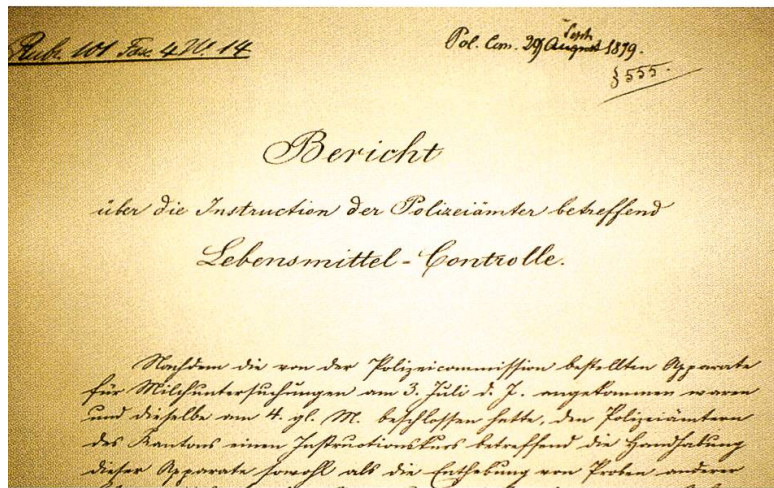 Rubr. 101 Fasc. 4 N. 14
Pol. Com. 29 August 1879.
§ 555.
Bericht
über die Instruction der Polizeiämter betreffend
Lebensmittel-Controlle.
Nachdem die von der Polizeicommission bestellten Apparate
für Milchuntersuchungen am 3. Juli d. J. angekommen waren
und dieselbe am 4. gl. M. beschlossen hatte, den Polizeiämtern
des Kantons einen Instructionskurs betreffend die Handhabung
dieser Apparate sowohl als die Enthebung von Proben anderer